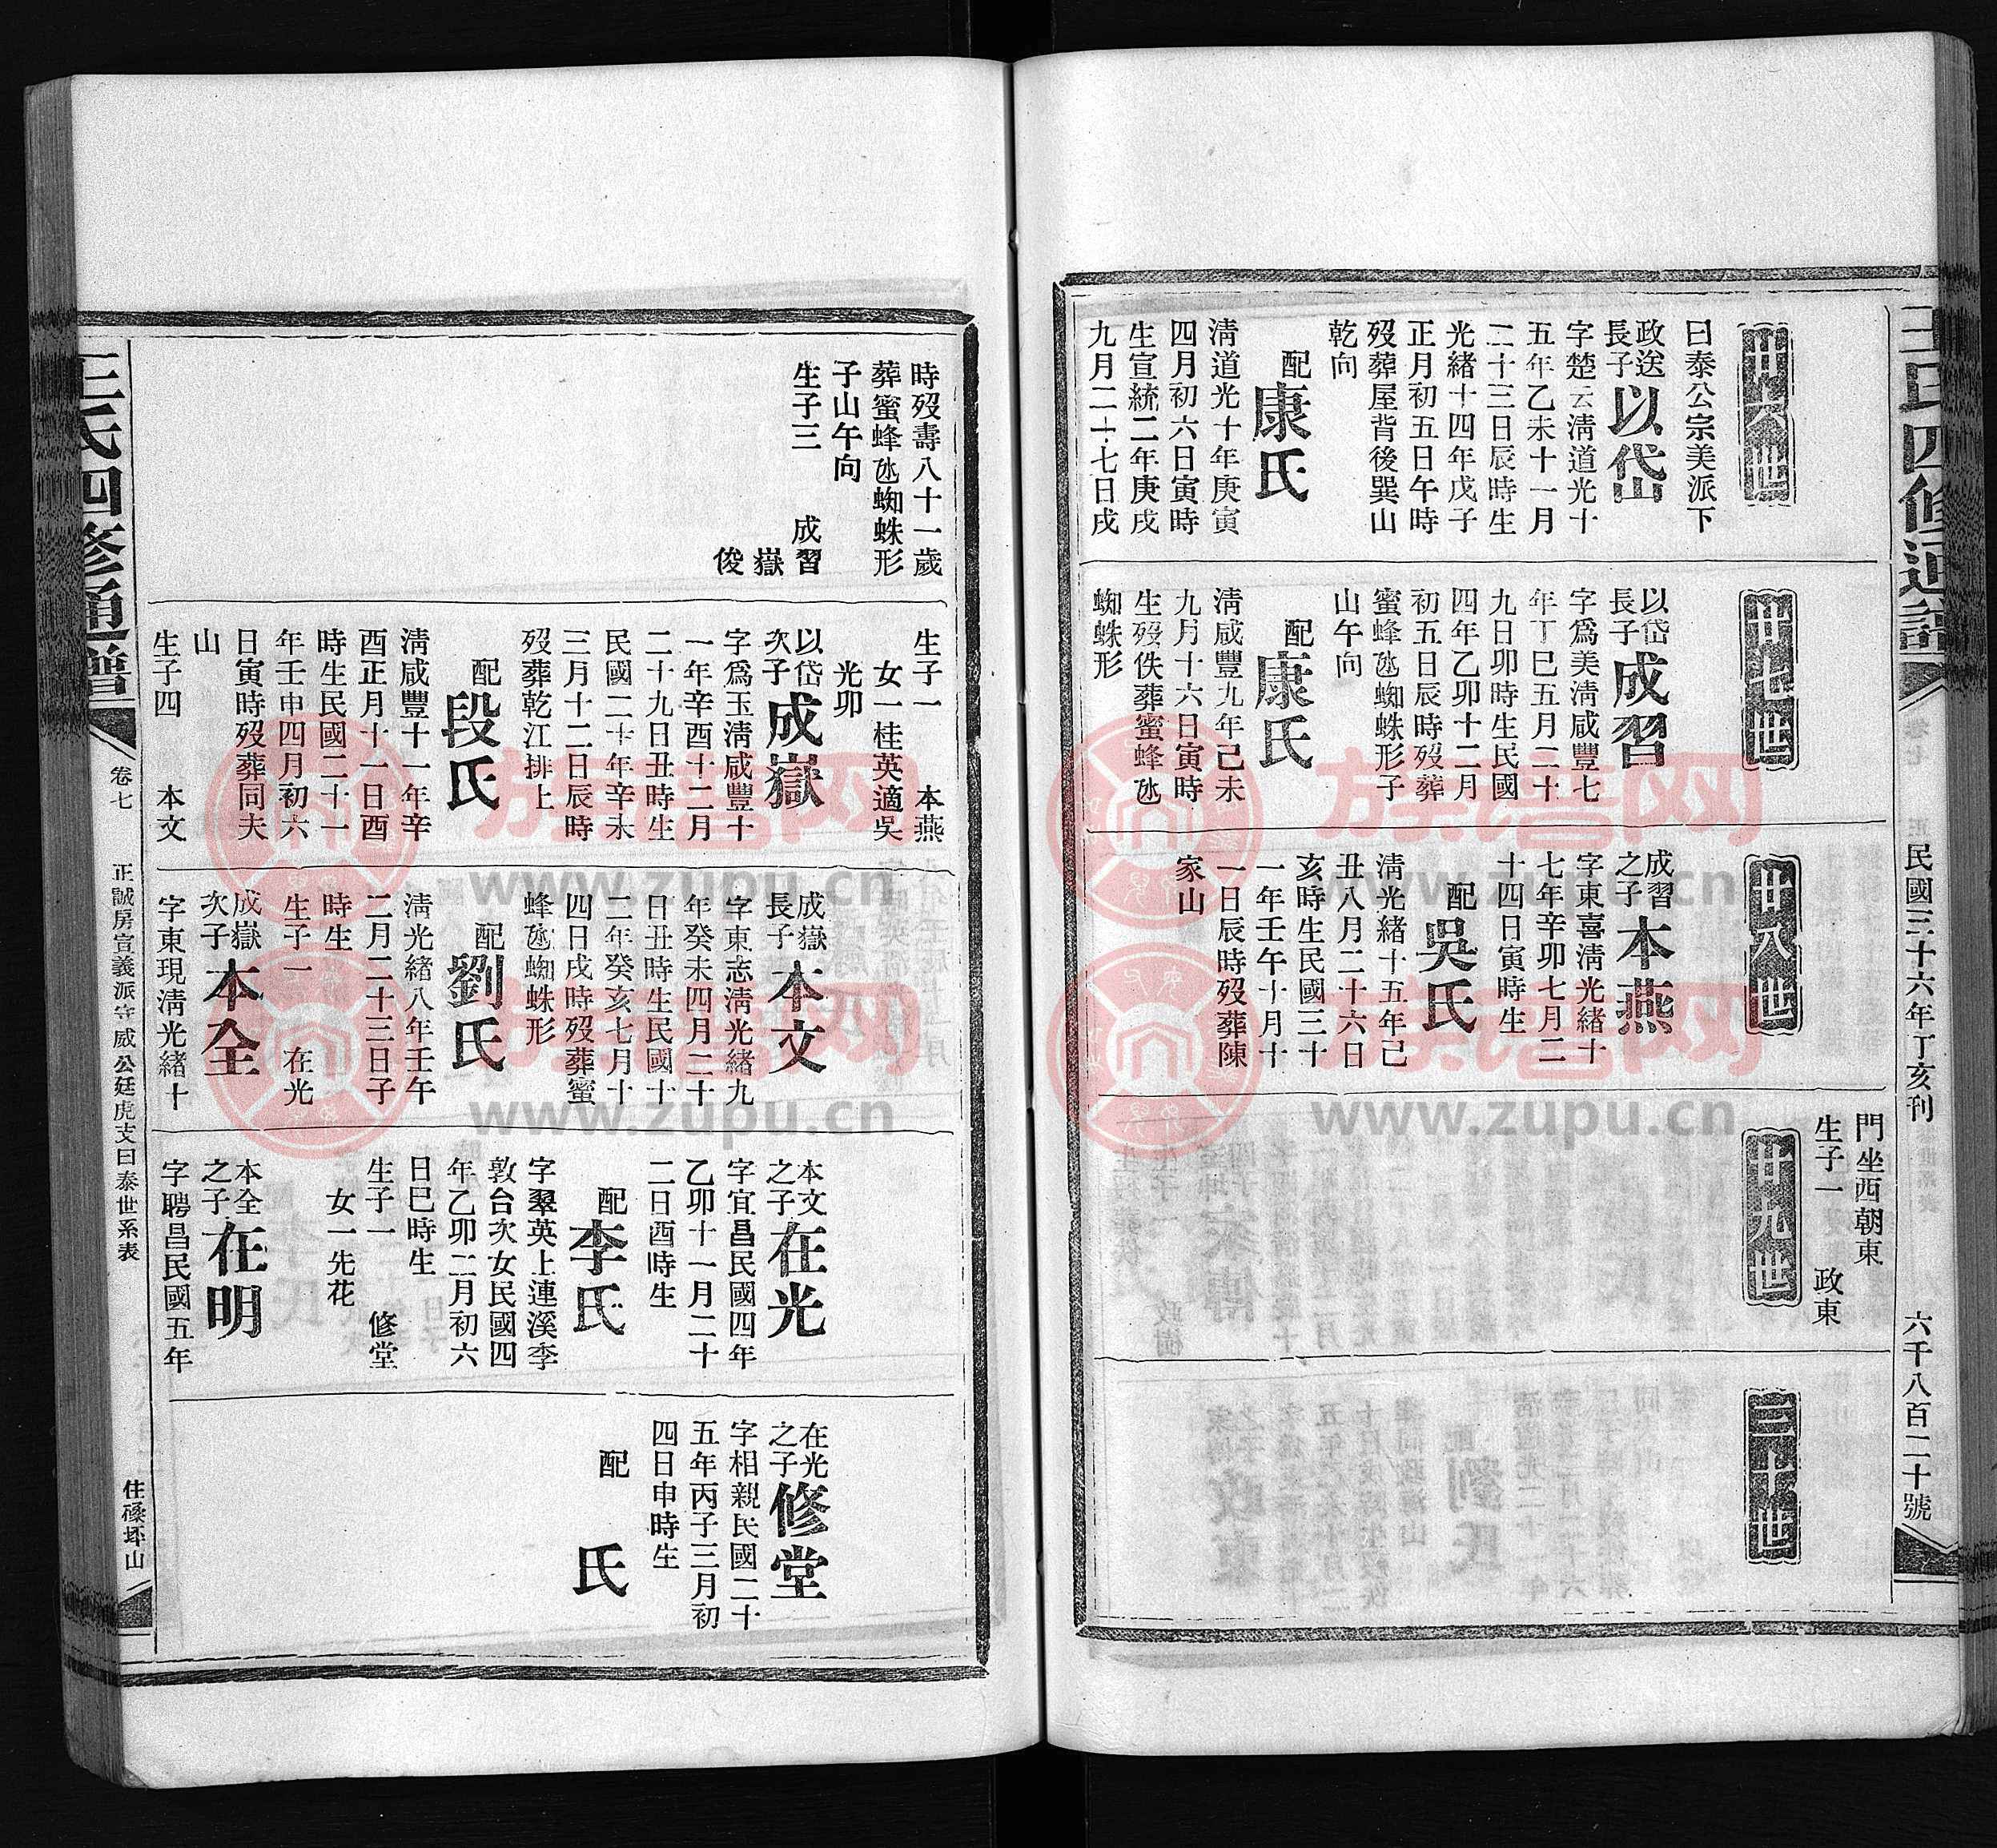 王氏四修通譜
卷七
民國三十六年丁亥刊
六千八百二十號
廿六世
曰泰公宗美派下
政送
長子
以岱
字楚云淸道光十
五年乙未十一月
二十三日辰時生
光緒十四年戊子
正月初五日午時
歿葬屋背後巽山
乾向
配
康氏
淸道光十年庚寅
四月初六日寅時
生宣統二年庚戌
九月二十七日戌
廿七世
以岱
長子
成習
字爲美淸咸豐七
年丁巳五月二十
九日卯時生民國
四年乙卯十二月
初五日辰時歿葬
蜜蜂氹蜘蛛形子
山午向
配
康氏
淸咸豐九年己未
九月十六日寅時
生歿佚葬蜜蜂氹
蜘蛛形
廿八世
成習
之子
本燕
字東喜淸光緒十
七年辛卯七月二
十四日寅時生
配
吳氏
淸光緒十五年己
丑八月二十六日
亥時生民國三十
一年壬午十月十
一日辰時歿葬陳
家山
門坐西朝東
生子一 政東
廿九世
三十世
時歿壽八十一歲
葬蜜蜂氹蜘蛛形
子山午向
生子三 成習
嶽
俊
生子一 本燕
女一桂英適吳
光卯
以岱
次子
成嶽
字爲玉淸咸豐十
一年辛酉十二月
二十九日丑時生
民國二十年辛未
三月十二日辰時
歿葬乾江排上
配
段氏
淸咸豐十一年辛
酉正月十一日酉
時生民國二十一
年壬申四月初六
日寅時歿葬同夫
山
生子四 本文
成嶽
長子
本文
字東志淸光緒九
年癸未四月二十
日丑時生民國十
二年癸亥七月十
四日戌時歿葬蜜
蜂氹蜘蛛形
配
劉氏
淸光緒八年壬午
二月二十三日子
時生
生子一 在光
成嶽
次子
本全
字東現淸光緒十
本文
之子
在光
字宜昌民國四年
乙卯十一月二十
二日酉時生
配
李氏
字翠英上連溪李
敦台次女民國四
年乙卯二月初六
日巳時生
生子一 修堂
女一先花
本全
之子
在明
字聘昌民國五年
在光
之子
修堂
字相親民國二十
五年丙子三月初
四日申時生
配
氏
王氏四修通譜
卷七
正誠房宣義派宗咸公廷虎支曰泰世系表
族谱网
www.zupu.cn
族谱网
www.zupu.cn
族谱网
www.zupu.cn
族谱网
www.zupu.cn